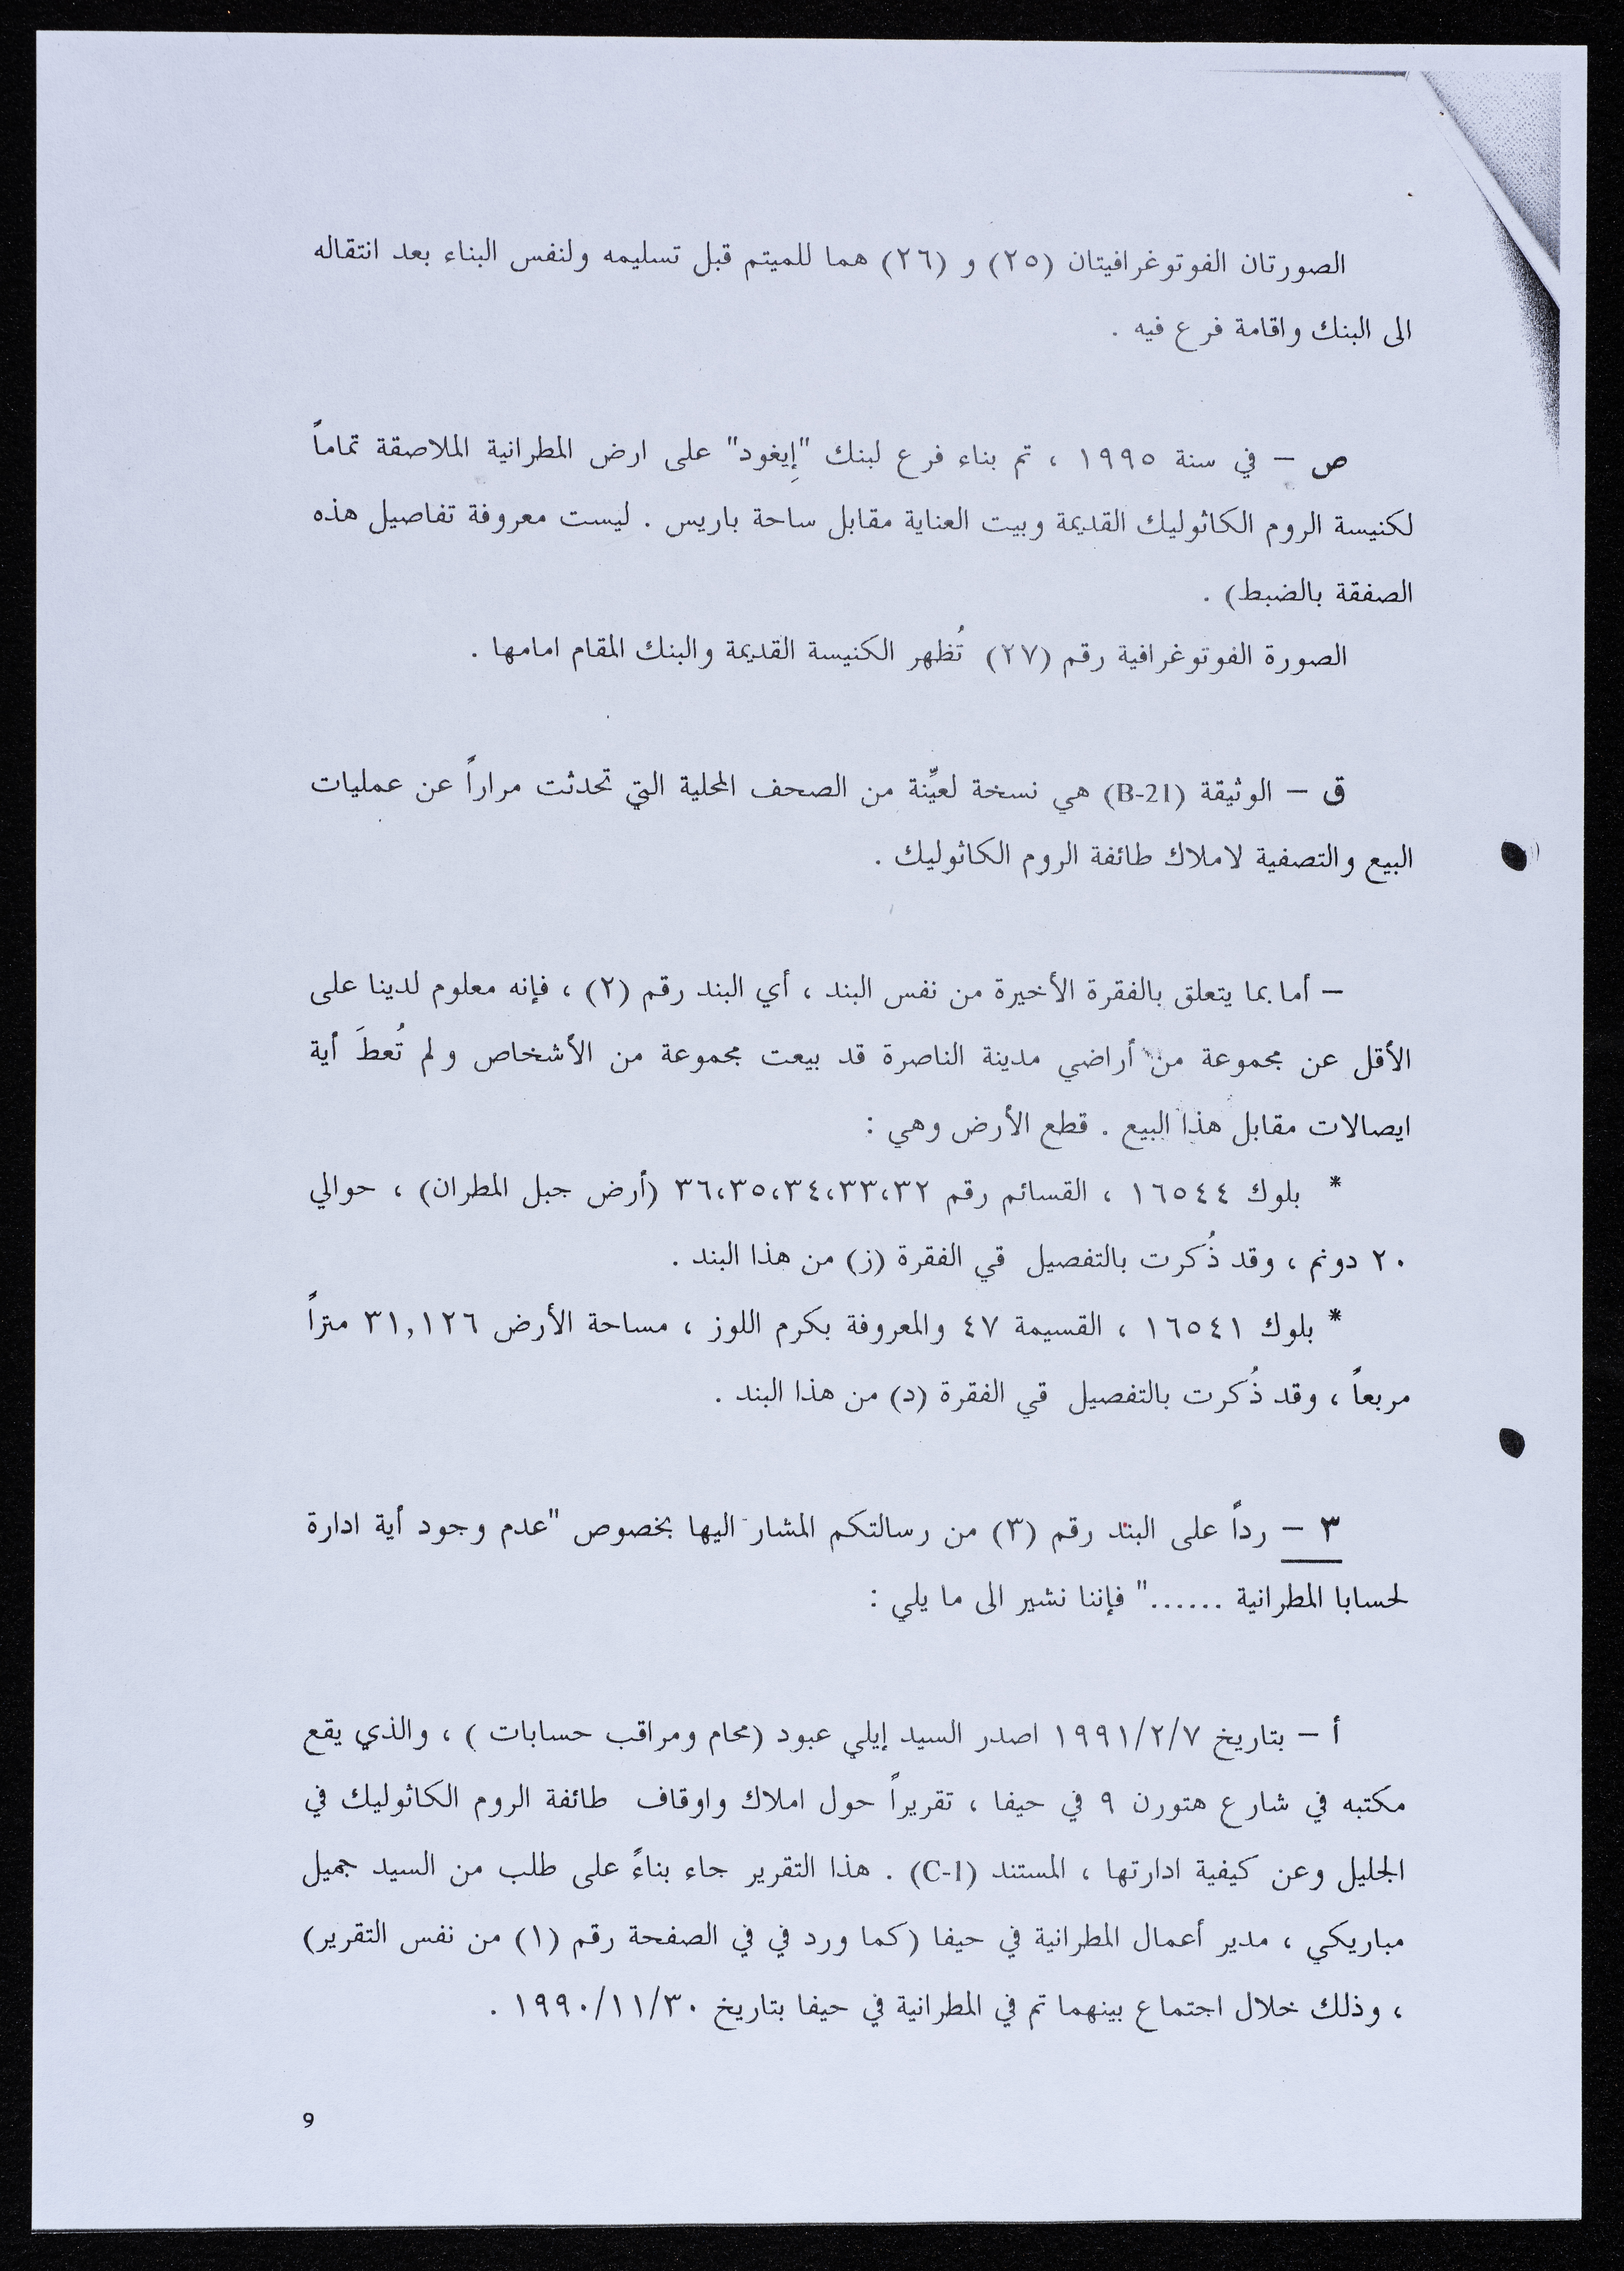 الصورتان الفوتوغرافيتان (٢٥) و (٢٦) هما للميتم قبل تسليمه ولنفس البناء بعد انتقاله
الى البنك واقامة فرع فيه .
ص – في سنة ١٩٩٥ ، تم بناء فرع لبنك "إيغود" على ارض المطرانية الملاصقة تماماً
لكنيسة الروم الكاثوليك القديمة وبيت العناية مقابل ساحة باريس . ليست معروفة تفاصيل هذه
الصفقة بالضبط) .
الصورة الفوتوغرافية رقم (٢٧) تُظهر الكنيسة القديمة والبنك المقام امامها .
ق – الوثيقة (B-21) هي نسخة لعيِّنة من الصحف المحلية التي تحدثت مراراً عن عمليات
البيع والتصفية لاملاك طائفة الروم الكاثوليك .
– أما بما يتعلق بالفقرة الأخيرة من نفس البند ، أي البند رقم (٢) ، فإنه معلوم لدينا على
الأقل عن مجموعة من أراضي مدينة الناصرة قد بيعت مجموعة من الأشخاص و لم تُعطَ أية
ايصالات مقابل هذا البيع . قطع الأرض وهي :
* بلوك ١٦٥٤٤ ، القسائم رقم ٣٦،٣٥،٣٤،٣٣،٣٢ (أرض جبل المطران) ، حوالي
٢٠ دونم ، وقد ذُكرت بالتفصيل قي الفقرة (ز) من هذا البند .
* بلوك ١٦٥٤١ ، القسيمة ٤٧ والمعروفة بكرم اللوز ، مساحة الأرض ٣١,١٢٦ متراً
مربعاً ، وقد ذُكرت بالتفصيل قي الفقرة (د) من هذا البند .
٣ – رداً على البند رقم (٣) من رسالتكم المشار اليها بخصوص "عدم وجود أية ادارة
لحسابا المطرانية ......" فإننا نشير الى ما يلي :
أ – بتاريخ ١٩٩١/٢/٧ اصدر السيد إيلي عبود (محام ومراقب حسابات ) ، والذي يقع
مكتبه في شارع هتورن ٩ في حيفا ، تقريراً حول املاك واوقاف طائفة الروم الكاثوليك في
الجليل وعن كيفية ادارتها ، المستند (C-1) . هذا التقرير جاء بناءً على طلب من السيد جميل
مباريكي ، مدير أعمال المطرانية في حيفا (كما ورد في في الصفحة رقم (١) من نفس التقرير)
، وذلك خلال اجتماع بينهما تم في المطرانية في حيفا بتاريخ ١٩٩٠/١١/٣٠ .
9